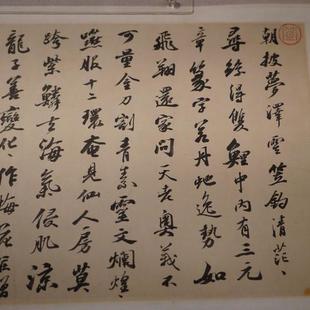 朝披夢澤雲笠釣清茫〻
尋絲得雙鯉中内有三元
章篆字若丹虵逸勢如
飛翔還家問天老奧義不
可量金刀割青素靈文爛煌〻
嚥服十二環奄見仙人房莫
跨紫鱗去海氣侵肌涼
龍子善變化〻作梅花